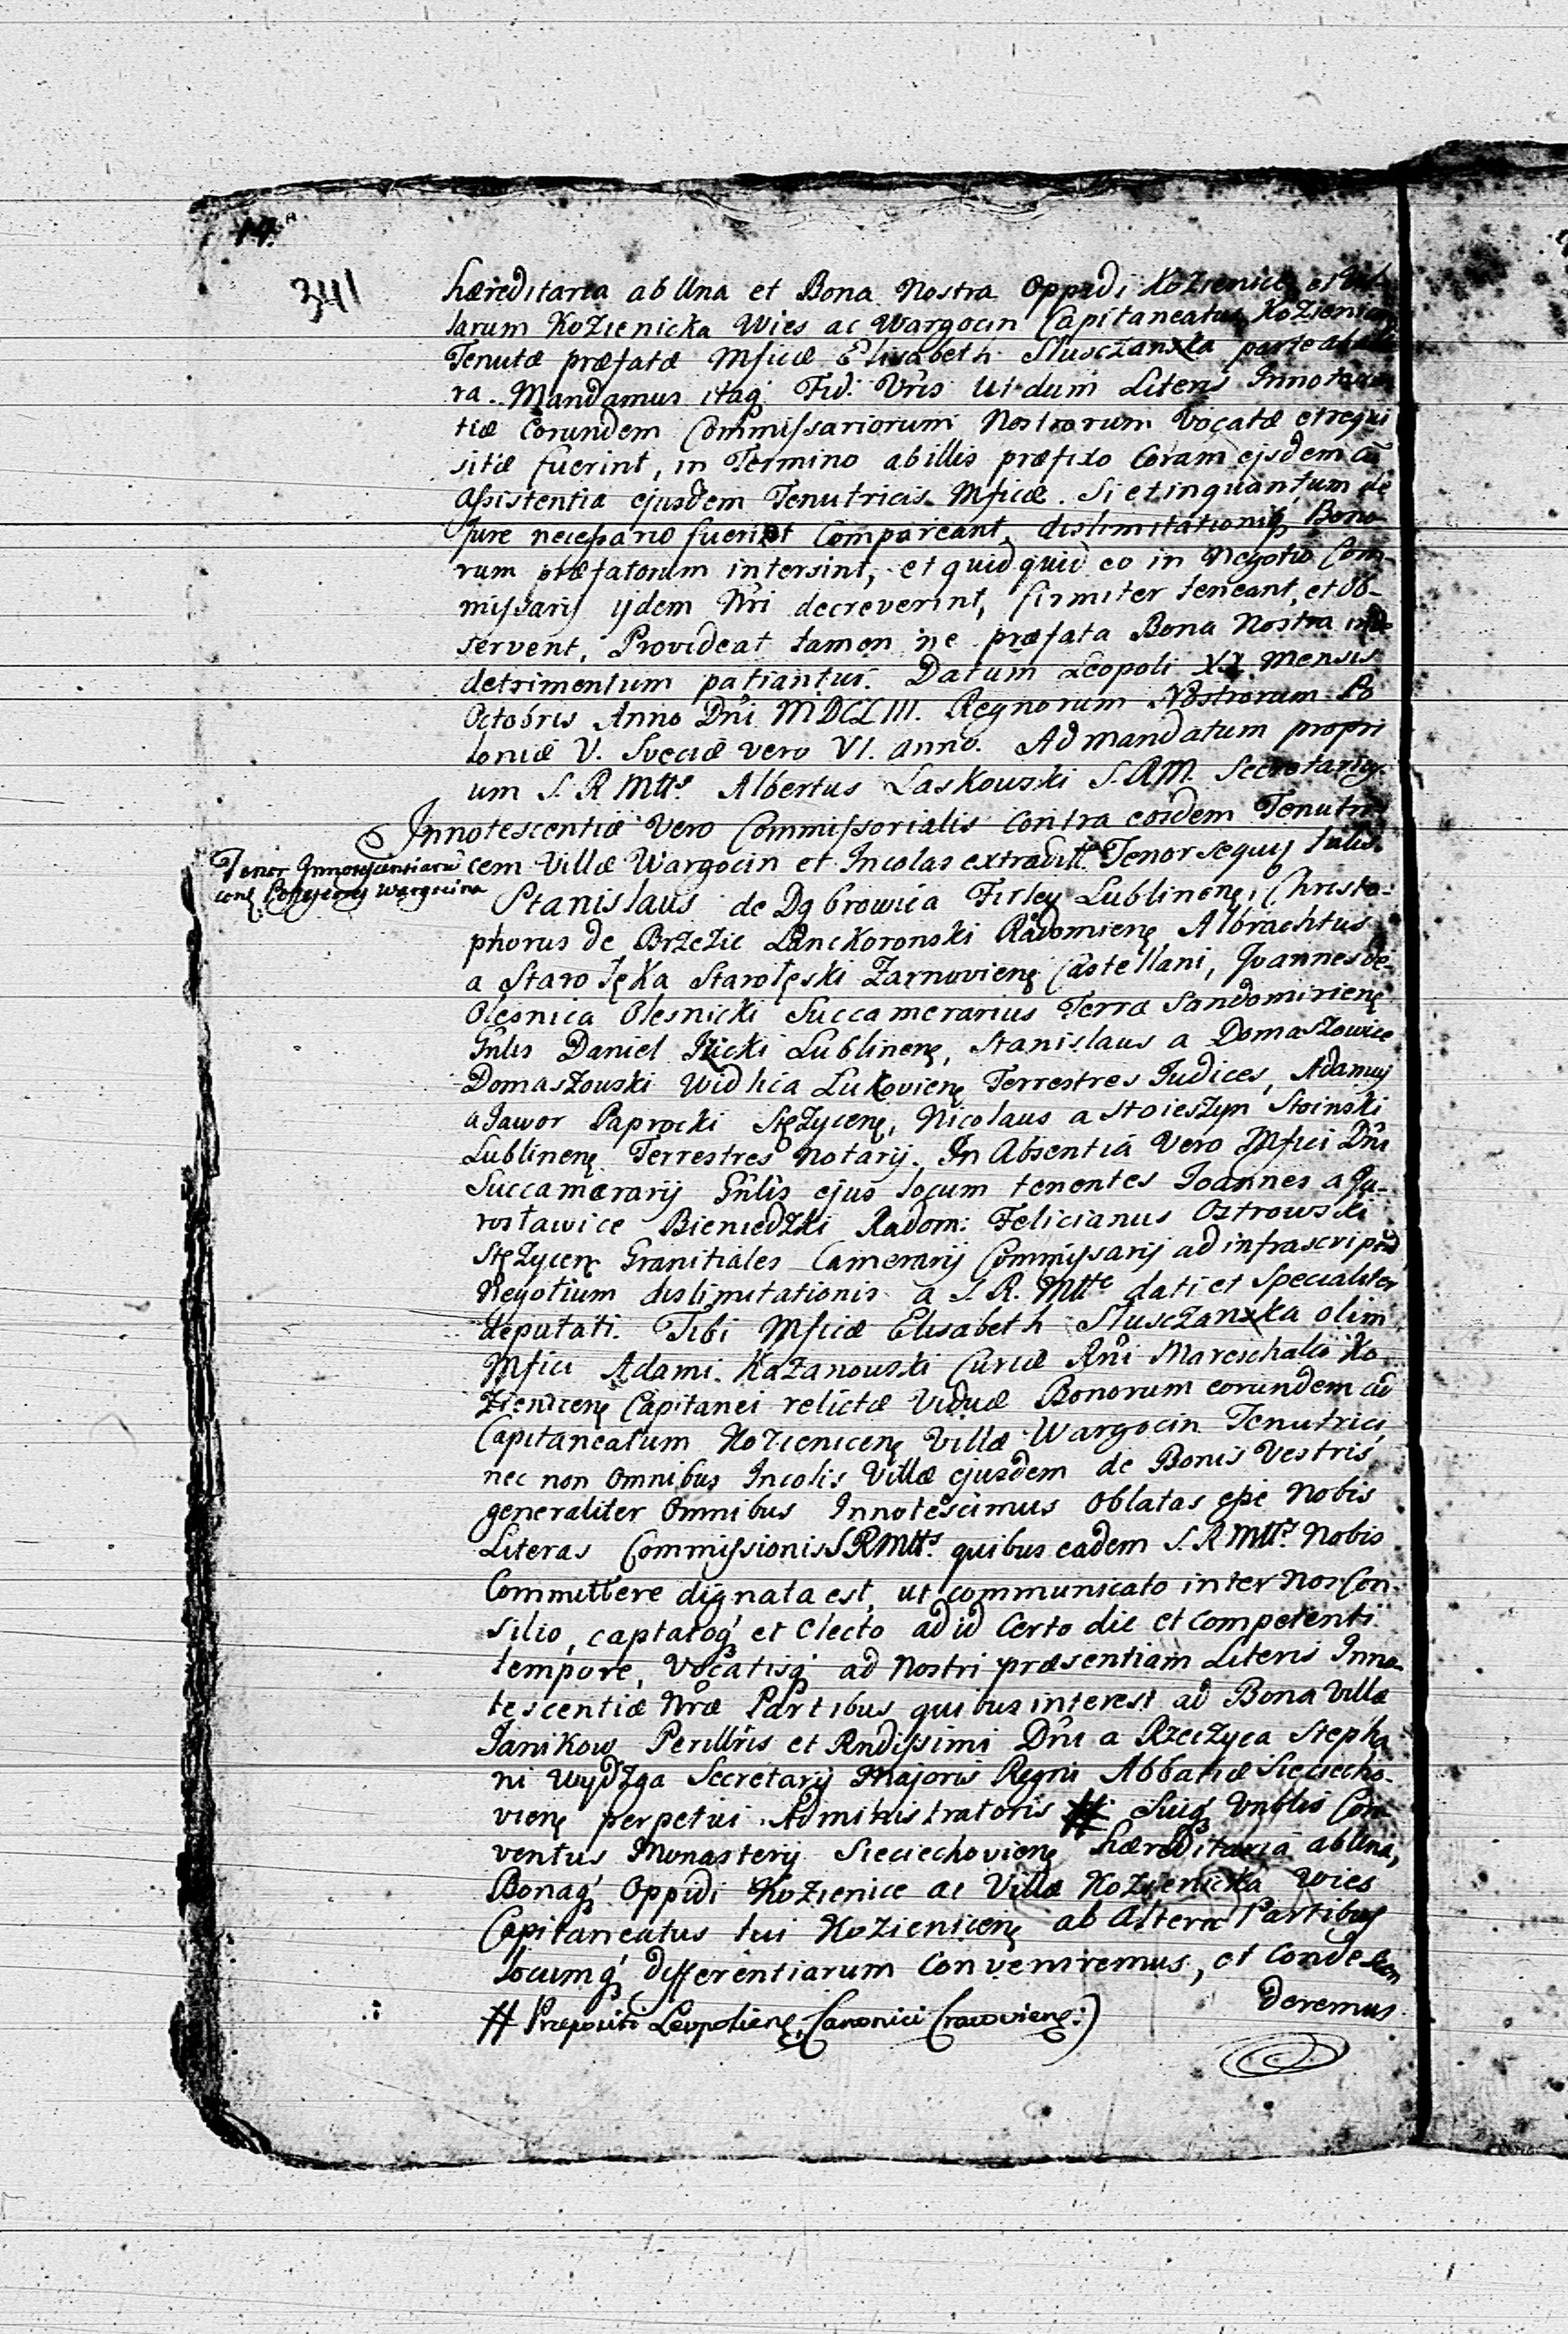 14.
341
hæreditaria ab Una et Bona Nostra Oppidi Kozienice et Vil-
larum Kozienicka Wies ac Wargocin Capitaneatus Kozienicen
Tenutæ præfatæ Mficæ Elisabeth Slusczanxka parte ab alte
ra. Mandamus itaq́ Fid. Vris Ut dum Literis Innotescen
tiæ Eorundem Commissariorum Nostrorum Vocatæ et requi
sitæ fuerint, in Termino ab illis præfixo Coram ejsdem cū
Assistentia ejusdem Tenutricis Mficæ. Si et inquantum de
Jure necessario fuerint Compareant, dislimitationiq́ Bono
rum præfatorum intersint, et quidquid eo in Negotio Com-
missarij ijdem Nri decreverint, firmiter teneant, et ob-
servent, Provideat tamen ne præfata Bona Nostra inde
detrimentum patiantur. Datum Leopoli XX Mensis
Octobris Anno Dni MDCLIII. Regnorum Nostrorum Po
loniæ V. Sveciæ vero VI. anno. Ad mandatum propri
um S. R Mtts. Albertus Laskowski S. R M. Secretarius.
Innotescentiæ Vero Commissorialis Contra eosdem Tenutri
cem Villæ Wargocin et Incolas extraditæ Tenor sequis talis.
Tenor Innotescentiarū
conę Possessores Wargocina
Stanislaus de Dąbrowica Firley Lublinenę, Christo-
phorus de Brzezie Lanckoronski Radomienę, Albrachtus
a Starołęka Starołęski Zarnovienę Castellani, Joannes de
Olesnica Olesnicki Succamerarius Terræ Sandomirienę
Gnlis Daniel Izicki Lublinenę, Stanislaus a Domaszowice
Domaszouski Widlica Lukovienę Terrestres Judices, Adamus
a Jawor Paprocki Stęzycenę, Nicolaus a Stoieszyn Stoinski
Lublinenę Terrestres Notarij. In Absentiá Vero Mfici Dni
Succamerarij Gnlis ejus locum tenentes Joannes a Ja-
rosławice Bieniedzki Radom: Felicianus Ostrowski
Stęzycenę Granitiales Camerarij Commissarij ad infrascriptū
Negotium dislimitationis a S. R. Mtte dati et Specialiter
deputati. Tibi Mficæ Elisabeth Slusczanxka olim
Mfici Adami Kazanouski Curiæ Rni Mareschalio Ko
zienicenę Capitanei relictæ Viduæ Bonorum eorundem ad
Capitaneatum Kozienicenę Villæ Wargocin Tenutrici,
nec non Omnibus Incolis Villæ ejusdem de Bonis Vestris
generaliter Omnibus Innotescimus Oblatas esse Nobis
Literas Commissionis S R Mtts. quibus eadem S. R Mtts. Nobis
Committere dignata est, ut communicato inter Nos Con-
silio, captatoq́ et electo ad id Certo die et competenti
tempore, Vocatisq́ ad Nostri præsentiam Literis Inno-
tescentiæ Nræ Partibus quibus interest ad Bona Villæ
Janikow Perillris et Rndissimi Dni a Rzeczyca Stepha
ni Wydzga Secretarij Majoris Regni Abbatiæ Sieciecho-
vienę perpetui Administratoris # Suiq́ Vnblis Con-
ventus Monasterij Sieciechovienę hæreditaria ab Una,
Bonaq́ Oppidi Kozienice ac Villæ Kozienicka Wies
Capitaneatus tui Kozienicenę ab Altera Partibus
locumq́ differentiarum Conveniremus, et Condescen
deremus
# Præpositi Leopolienę, Canonici Cracovienę:)